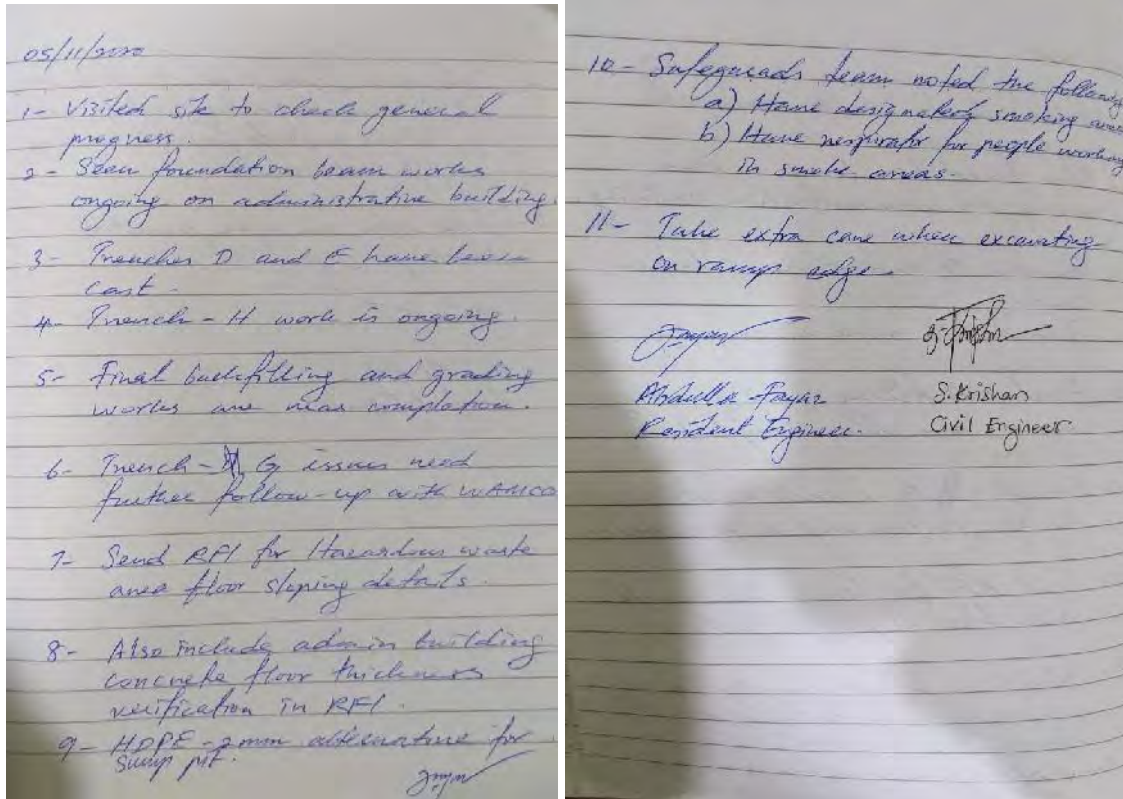 05/11/2020
1- Visited site to check general
progress.
2- Seen foundation beam works
ongoing on administrative building.
3- Trenches D and E have been
cast.
4- Trench-H work is ongoing.
5- Final backfilling and grading
works are near completion.
6- Trench- G issues need
further follow-up with WAMCO
7- Send RFI for Hazardous waste
area floor sloping details.
8- Also include admin building
concrete floor thickness
verification in RFI.
9- HDPE-2mm alternative for
sump pit.
10- Safeguards team noted the following
a) Have designated smoking area
b) Have respirator for people working
in smoke areas.
11- Take extra care when excavating
on ramp edge.
Abdulla Fayaz
Resident Engineer.
S. Krishan
Civil Engineer